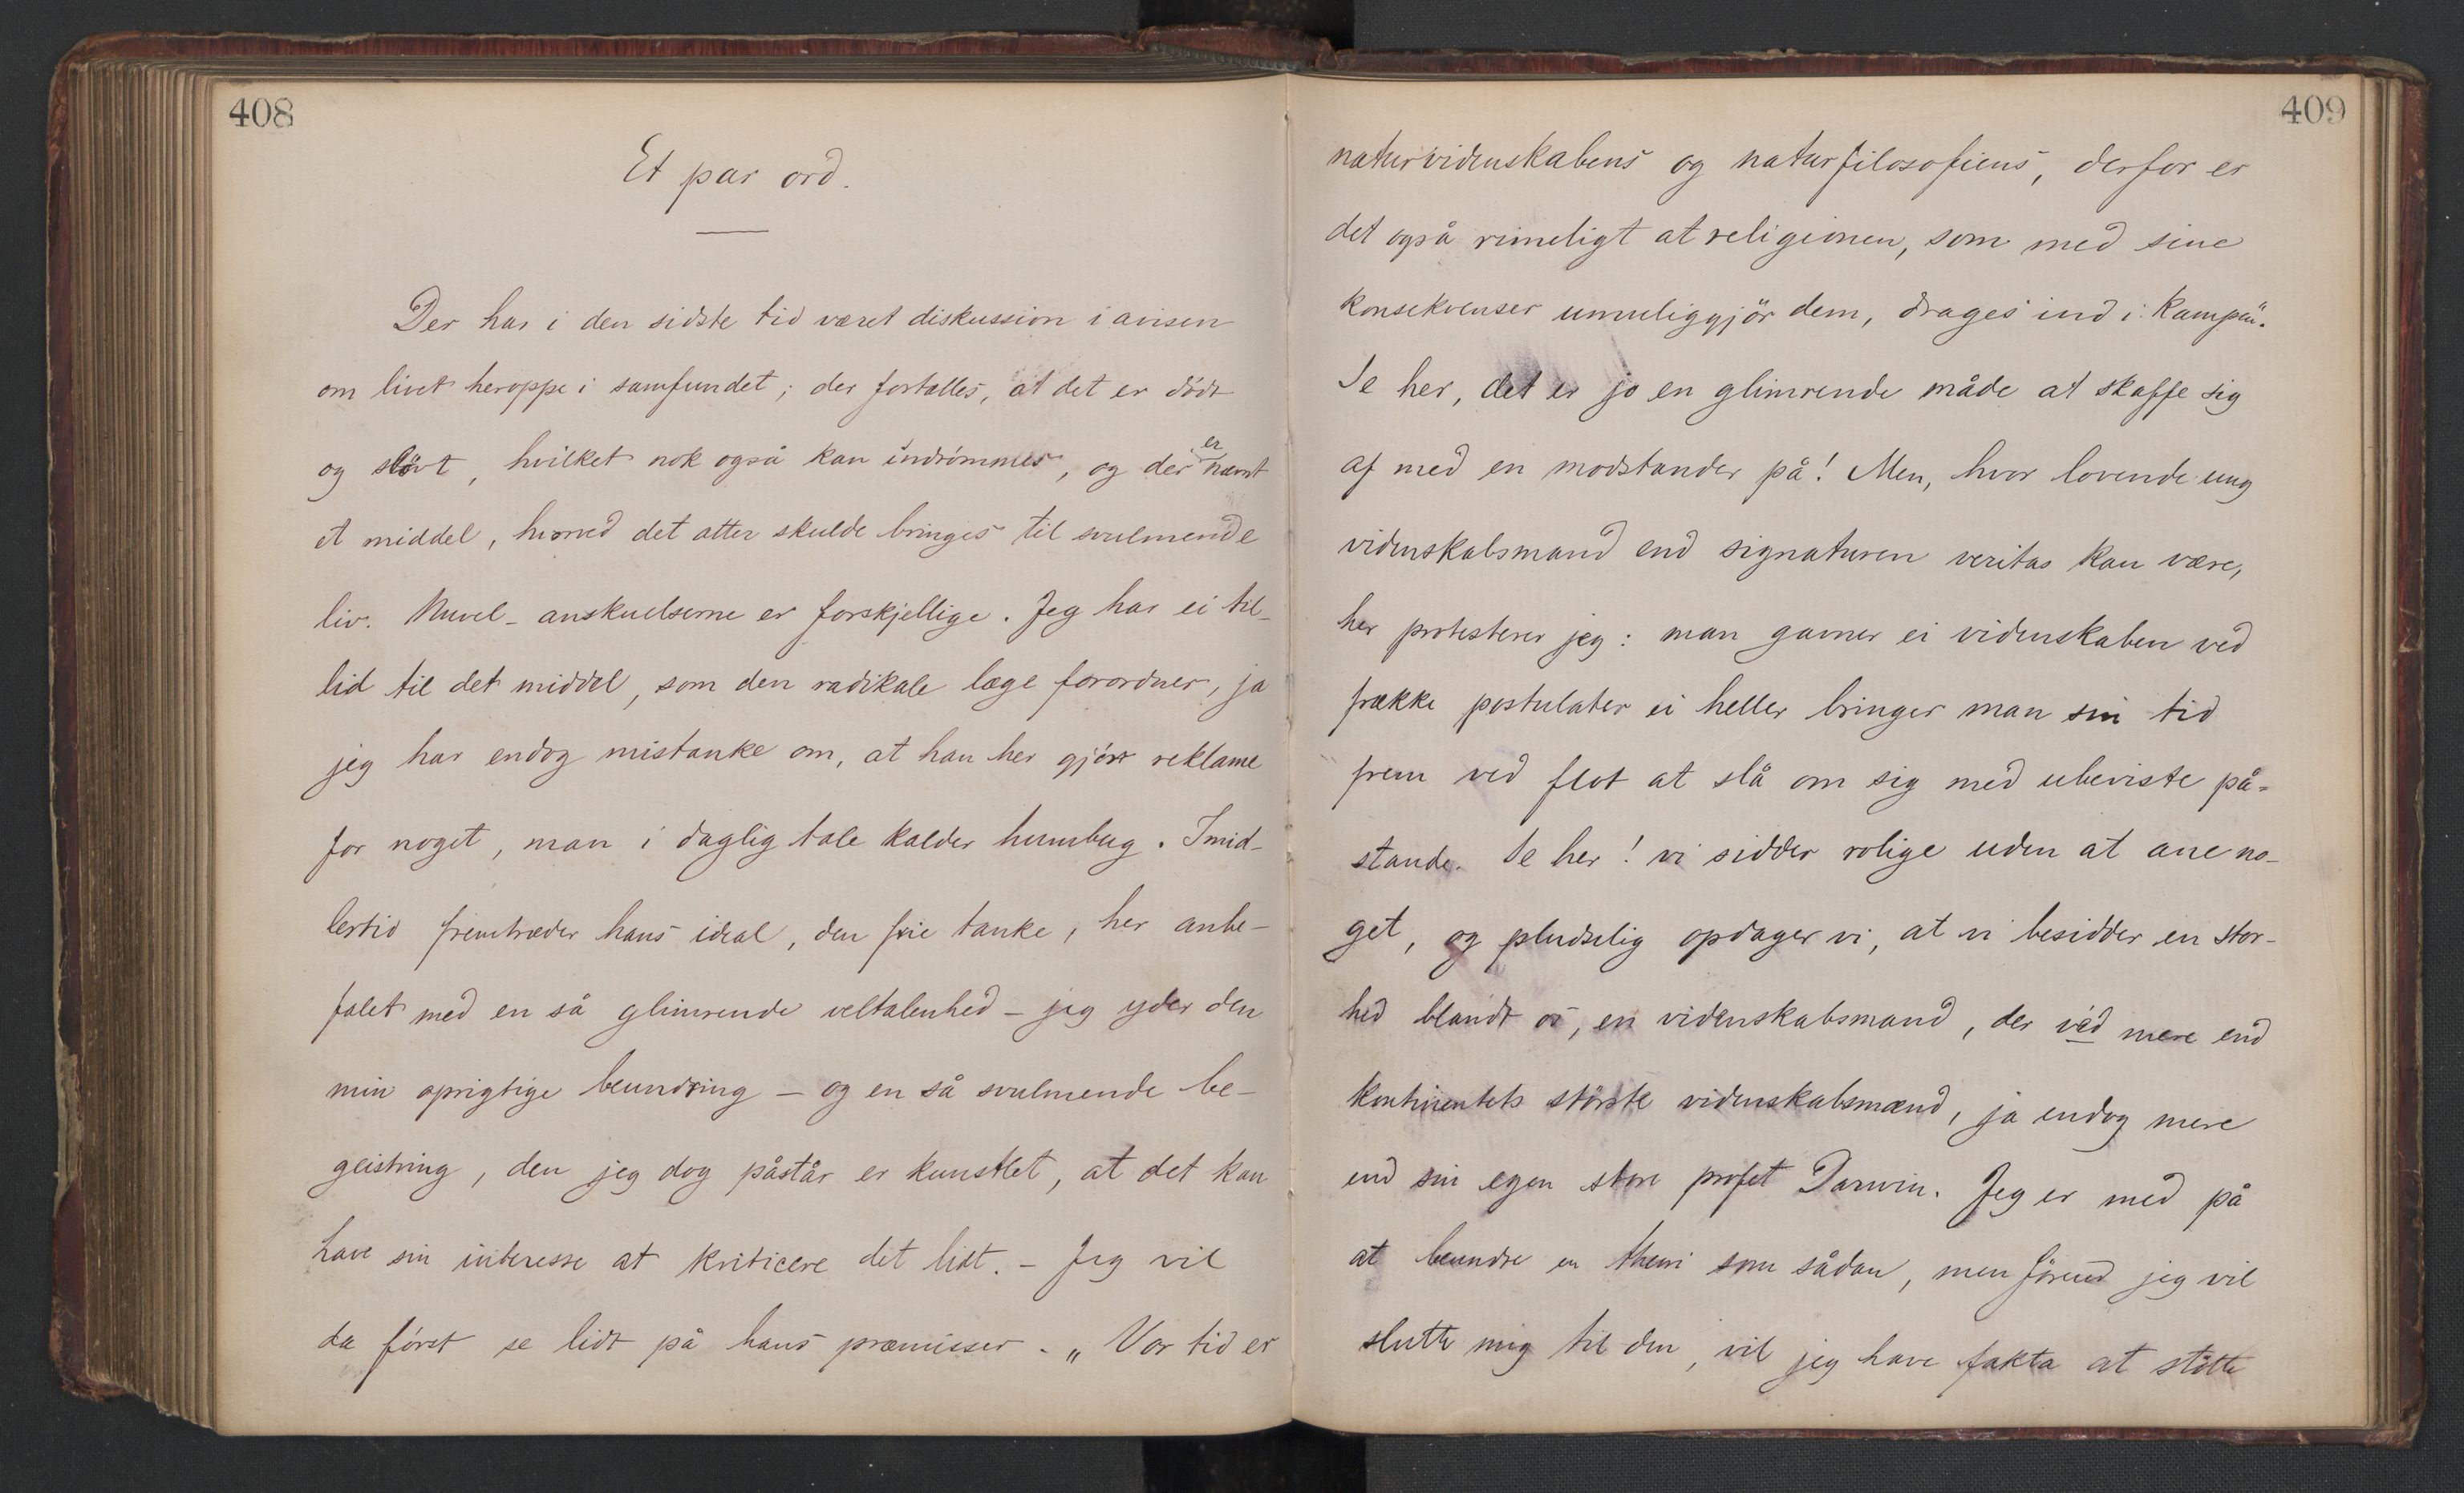 408
Et par ord.
Der har i den sidste tid været diskussion i avisen
om livet heroppe i samfundet; der fortælles, at det er dödt
og slövt, hvilket nok også kan indrömmes, og der er nævnt
et middel, hvorved det atter skulde bringes til svulmende
liv. Nuvel - anskuelserne er forskjellige. Jeg har ei til-
lid til det middel, som den radikale læge forordner, ja
jeg har endog mistanke om, at han her gjörr reklame
for noget, man i daglig tale kalder humbug. Imid-
lertid fremtræder hans ideal, den frie tanke, her anbe-
falet med en så glimrende veltalenhed - jeg yder den
min oprigtige beundring - og en så svulmende be-
geistring, den jeg dog påstår er kunstlet, at det kan
have sin interesse at kriticere det lidt. - Jeg vil
da först se lidt på hans præmisser. „Vor tid er
409
naturvidenskabens og naturfilosofiens, derfor er
det også rimeligt at religionen, som med sine
konsekvenser umuliggjör dem, drages ind i kampen“.
Se her, det er jo en glimrende måde at skaffe sig
af med en modstander på! Men, hvor lovende ung
videnskabsmand end signaturen veritas kan være,
her protesterer jeg: man gavner ei videnskaben ved
frække postulater ei heller bringer man sin tid
frem ved flot at slå om sig med ubeviste på-
stande. Se her! vi sidder rolige uden at ane no-
get, og pludselig opdager vi, at vi besidder en stor-
hed blandt os, en videnskabsmand, der véd mere end
kontinentets störste videnskabsmænd, ja endog mere
end sin egen store profet Darwin. Jeg er med på
at beundre en theori som sådan, men förend jeg vil
slutte mig til den, vil jeg have fakta at stötte